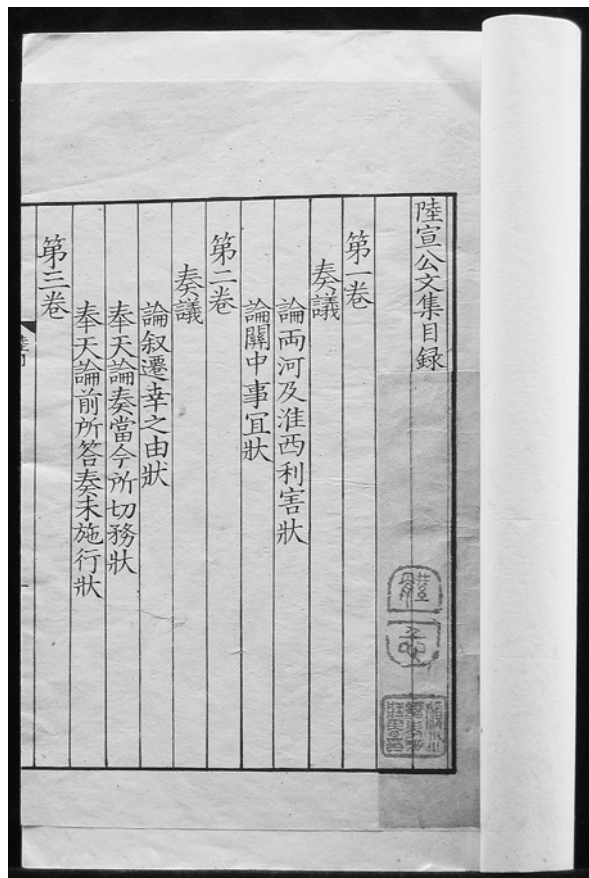 陸宣公文集目録
第一卷
奏議
論两河及淮西利害狀
論關中事冝狀
第二卷
奏議
論叙遷幸之由狀
奉天論奏當今所切務狀
奉天論前所答奏未施行狀
第三卷